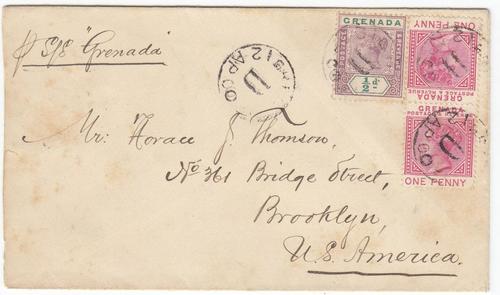 p S/S "Grenada"
GRENADA
POSTAGE & REVENUE
½d
ONE PENNY
GRENADA
POSTAGE & REVENUE
GRENADA
POSTAGE & REVENUE
ONE PENNY
12 AP 00
D
D
AP 00
Mr. Horace J. Thomson,
No 361 Bridge Street,
Brooklyn,
U.S. America.